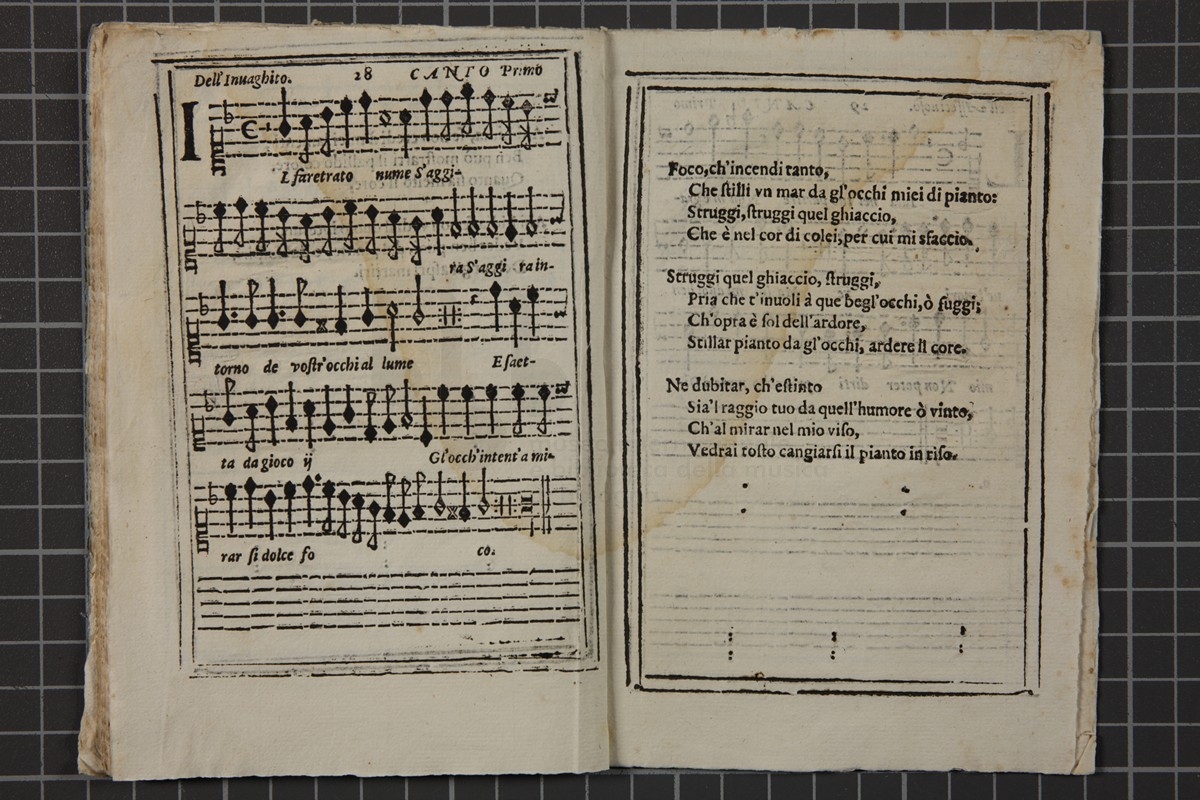 Dell'Inuaghito. 28 CANTO Primo
IL faretrato nume S'aggi-
ra S'aggi ra in-
torno de vostr'occhi al lume E saet-
ta da gioco ij Gl'occh'intent'a mi-
rar si dolce fo co.
Foco, ch'incendi tanto,
Che stilli vn mar da gl'occhi miei di pianto:
Struggi, struggi quel ghiaccio,
Che è nel cor di colei, per cui mi sfaccio.
Struggi quel ghiaccio, struggi,
Pria che t'inuoli à que begl'occhi, ò fuggi;
Ch'opra è sol dell'ardore,
Stillar pianto da gl'occhi, ardere il core.
Ne dubitar, ch'estinto
Sia'l raggio tuo da quell'humore ò vinto,
Ch'al mirar nel mio viso,
Vedrai tosto cangiarsi il pianto in riso.